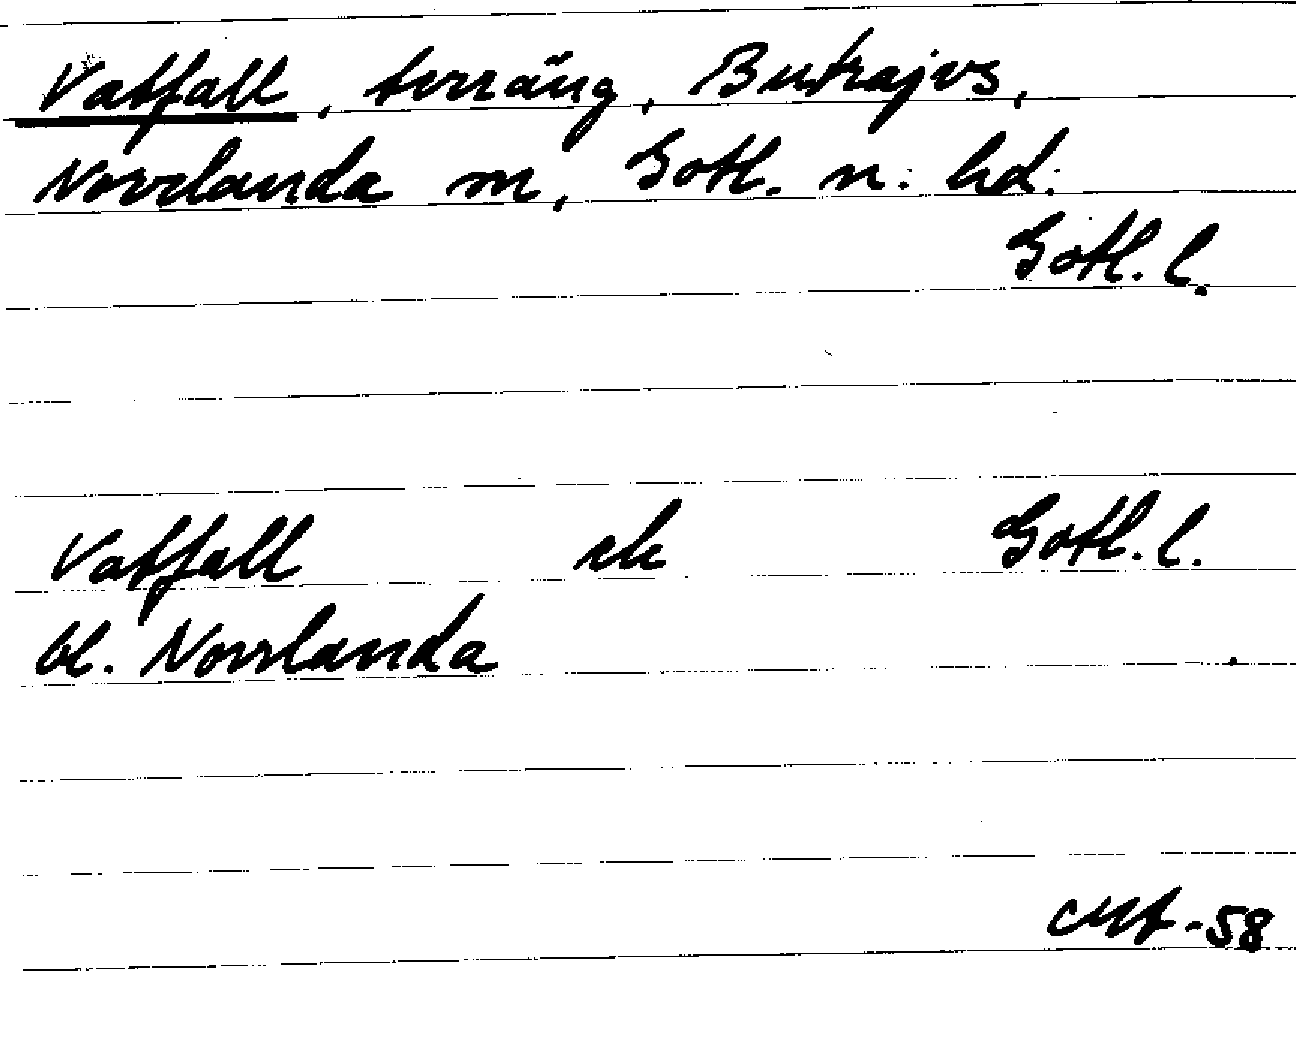 Vatfall, terräng, Butrajvs,
Norrlanda sn, Gotl. n. hd.
Gotl. l.
Vatfall ek Gotl. l.
bl. Norrlanda
-58